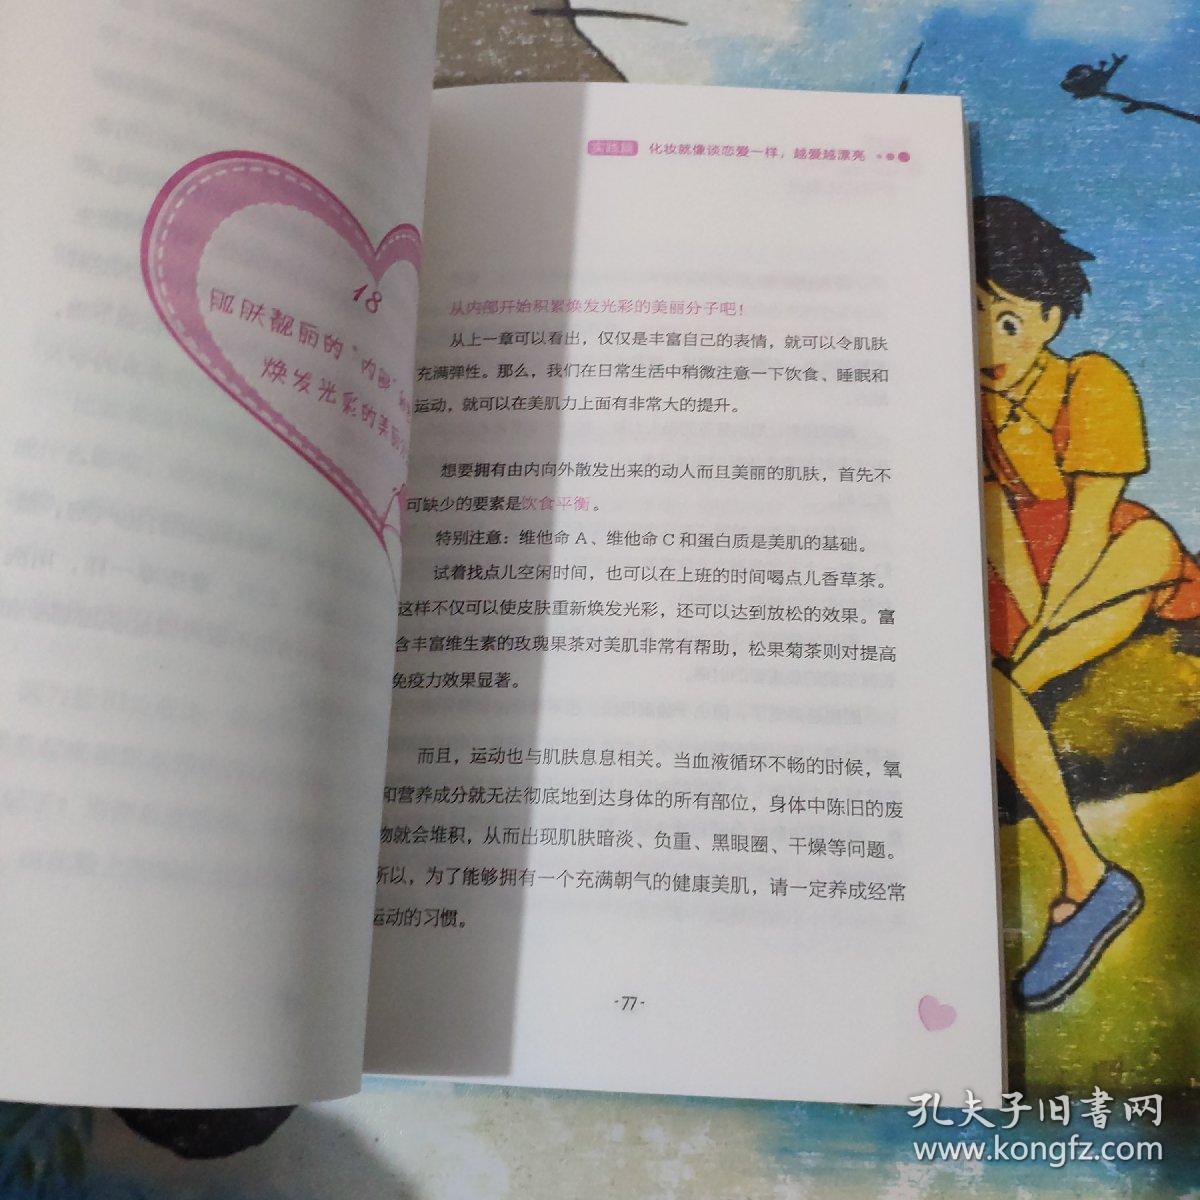 18
肌肤靓丽的“内部
焕发光彩的美丽
实践篇 化妆就像谈恋爱一样，越爱越漂亮
从内部开始积累焕发光彩的美丽分子吧！
从上一章可以看出，仅仅是丰富自己的表情，就可以令肌肤
充满弹性。那么，我们在日常生活中稍微注意一下饮食、睡眠和
运动，就可以在美肌力上面有非常大的提升。
想要拥有由内向外散发出来的动人而且美丽的肌肤，首先不
可缺少的要素是饮食平衡。
特别注意：维他命 A、维他命 C 和蛋白质是美肌的基础。
试着找点儿空闲时间，也可以在上班的时间喝点儿香草茶。
这样不仅可以使皮肤重新焕发光彩，还可以达到放松的效果。富
含丰富维生素的玫瑰果茶对美肌非常有帮助，松果菊茶则对提高
免疫力效果显著。
而且，运动也与肌肤息息相关。当血液循环不畅的时候，氧
和营养成分就无法彻底地到达身体的所有部位，身体中陈旧的废
物就会堆积，从而出现肌肤暗淡、负重、黑眼圈、干燥等问题。
所以，为了能够拥有一个充满朝气的健康美肌，请一定养成经常
运动的习惯。
-77-
孔夫子旧书网
www.kongfz.com